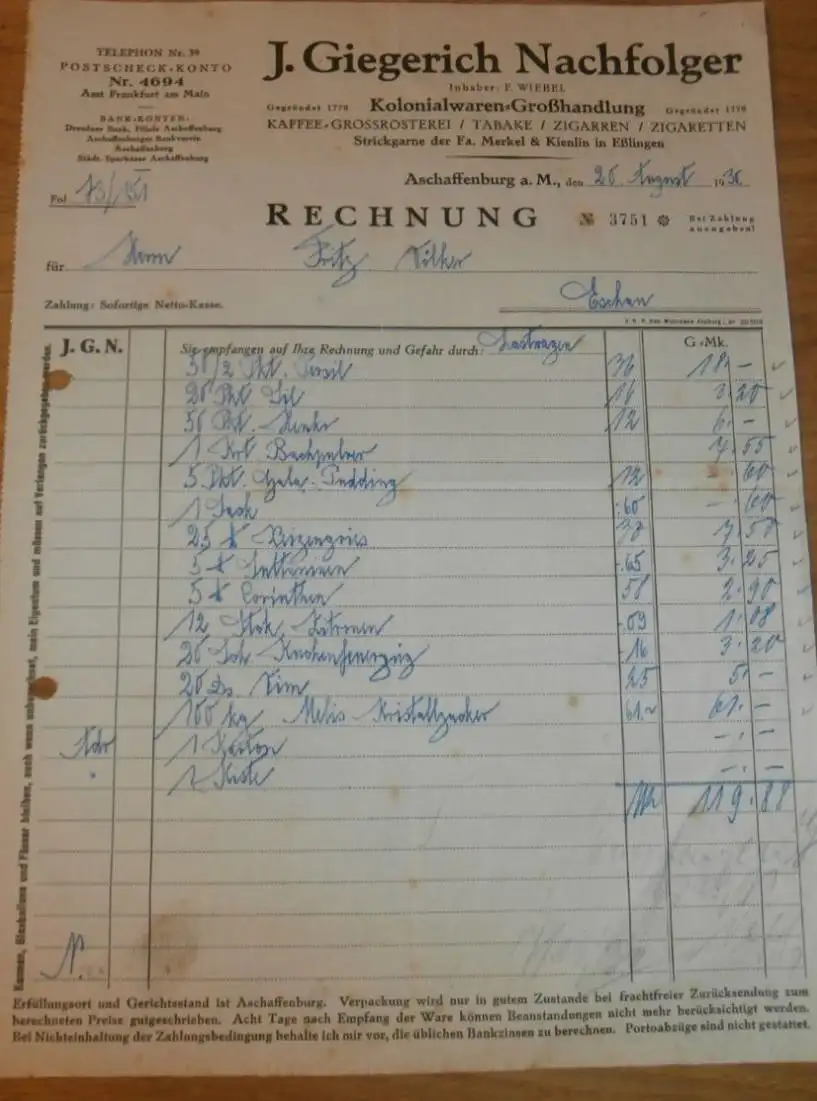 TELEPHON Nr. 39
POSTSCHECK-KONTO
Nr. 4694
Amt Frankfurt am Main
BANK-KONTEN:
Dresdner Bank, Filiale Aschaffenburg
Aschaffenburger Bankverein
Aschaffenburg
Städt. Sparkasse Aschaffenburg
J. Giegerich Nachfolger
Inhaber: F. WIEBEL
Gegründet 1770 Kolonialwaren-Großhandlung Gegründet 1770
KAFFEE-GROSSRÖSTEREI / TABAKE / ZIGARREN / ZIGARETTEN
Strickgarne der Fa. Merkel & Kienlin in Eßlingen
Aschaffenburg a. M., den 26. August 1930
Fol
RECHNUNG № 3751 Bei Zahlung
angeben!
für Herrn Fritz Völker
Zahlung: Sofortige Netto-Kasse.
Eschau
J. G. N. Sie empfangen auf Ihre Rechnung und Gefahr durch: Lastwagen G.-Mk.
50/2 Pkt. Persil 36 18.-
20 Pkt Sil 16 3.20
50 Pkt. Henko 12 6.-
1 Krt Backpulver 7.55
5 Pkt. Gala-Pudding 12 .60
1 Sack .60 -.60
25 ℔ Weizengries 30 7.50
5 ℔ Sultaninen -.65 3.25
5 ℔ Corinthen 58 2.90
12 Stck. Zitronen -.09 1.08
20 -.16 3.20
20 Ds. Vim 25 5.-
100 kg Melis Kristallzucker 61.- 61.-
1 Karton -.-
1 Kiste -.-
119.88
N.
Kannen, Glasballons und Fässer bleiben, auch wenn unberechnet, mein Eigentum und müssen auf Verlangen zurückgegeben werden.
Erfüllungsort und Gerichtsstand ist Aschaffenburg. Verpackung wird nur in gutem Zustande bei frachtfreier Zurücksendung zum
berechneten Preise gutgeschrieben. Acht Tage nach Empfang der Ware können Beanstandungen nicht mehr berücksichtigt werden.
Bei Nichteinhaltung der Zahlungsbedingung behalte ich mir vor, die üblichen Bankzinsen zu berechnen. Portoabzüge sind nicht gestattet.